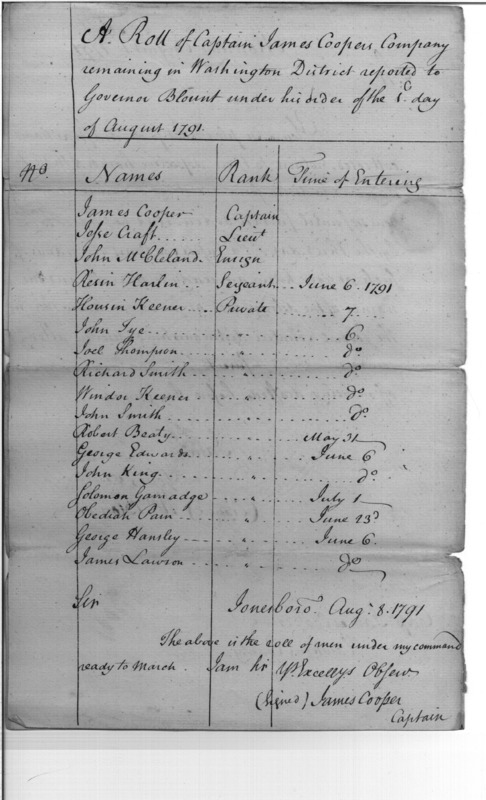 A. Roll of Captain James Coopers Company
remaining in Washington District reported to
Governor Blount under his order of the day
of August 1791.
No. Names Rank Time of Entering
James Cooper Captain
Jesse Craft..... Lieut
John McCleland. Ensign
Resin Harlin Sergeant... June 6. 1791
Housin Keener... Private 7.
John Tye " 6.
Joel Thompson " do
Richard Smith " do
Windor Keener " do
John Smith " do
Robert Beaty " May 31
George Edwards " June 6
John King " do
Solomon Gamadge " July 1
Obediah Pain " June 23d
George Hansley " June 6.
James Lawson " do
Sir Jonesboro. Augt 8. 1791
The above is the roll of men under my command
ready to march. I am Sir Yr. Excellys Observ
(Signed) James Cooper
Captain